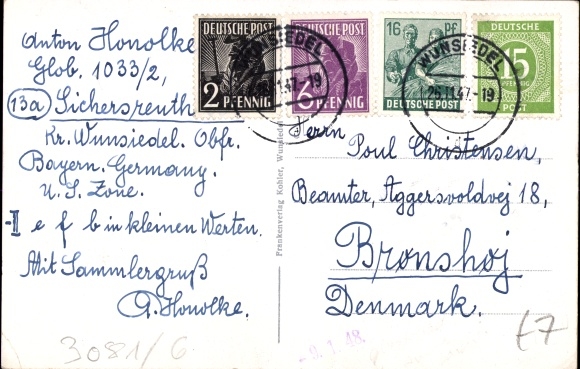 Anton Honolke
Glob. 1033/2,
13a Sichersreuth
Kr. Wunsiedel. Obfr.
Bayern. Germany.
U. S. Zone.
-II e f b in kleinen Werten.
Mit Sammlergruß
A. Honolke.
3081/6
DEUTSCHE POST
2 PFENNIG
DEUTSCHE POST
6 PFENNIG
16 Pf
DEUTSCHE POST
DEUTSCHE
15
PFENNIG
POST
WUNSIEDEL
47-19
WUNSIEDEL
25.11.47.-19
Frankenverlag Kohler, Wunsiedel
Herrn
Poul Christensen,
Beamter, Aggersvoldvej 18,
Bronshoj
Denmark.
9. 1. 48.
£7